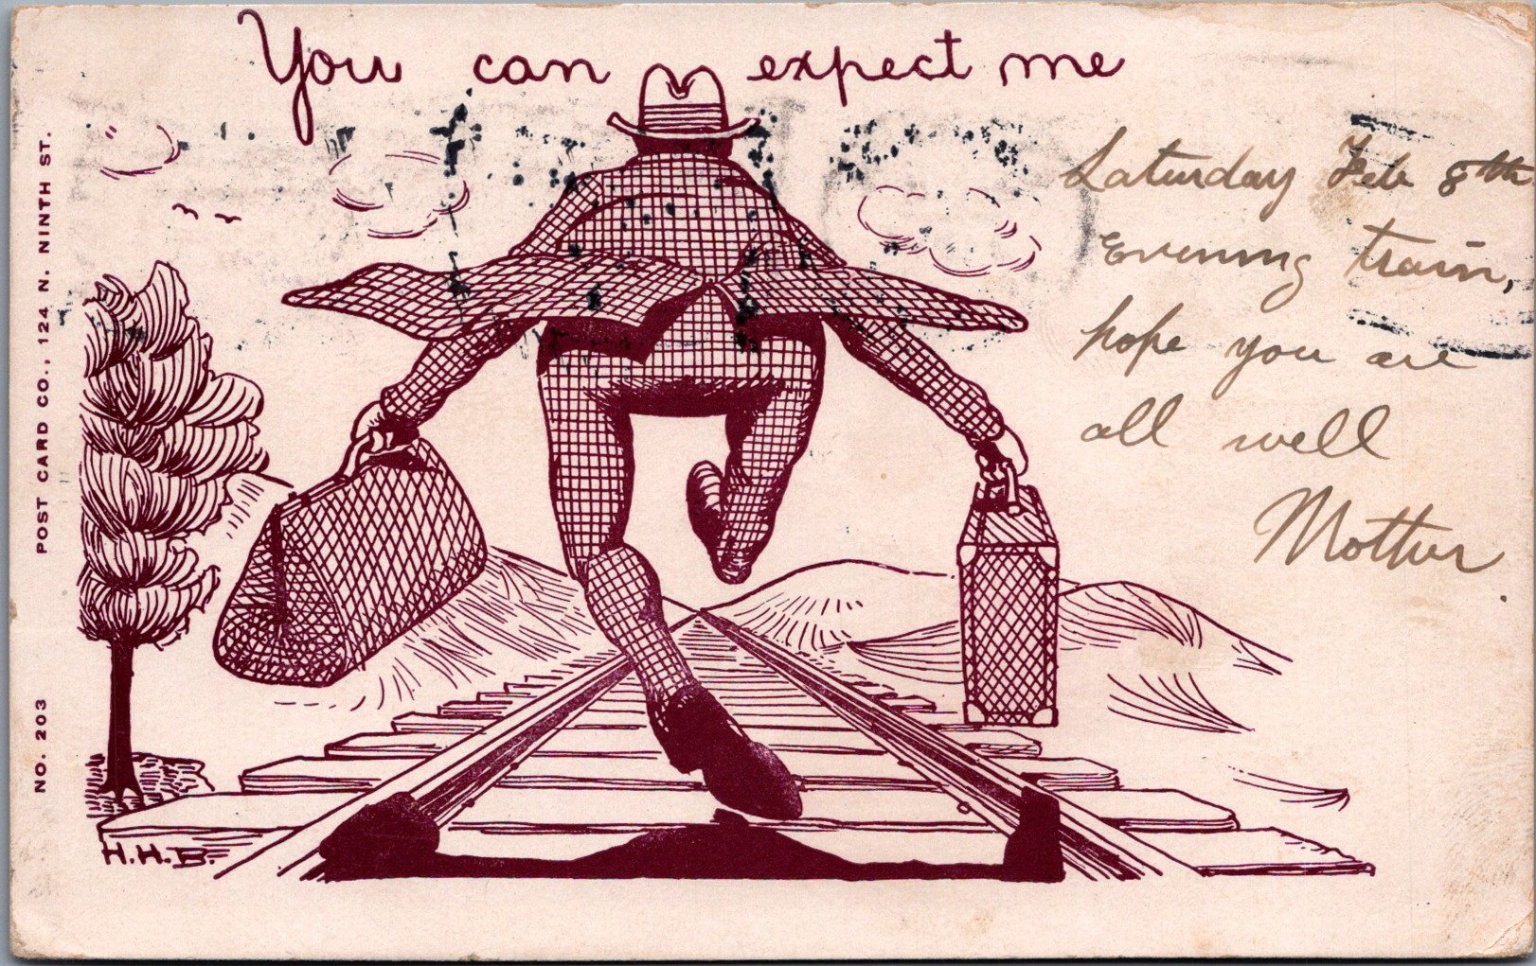 You can expect me
Saturday Feb 8th
Evening train,
hope you are
all well
Mother
POST CARD CO., 124 N. NINTH ST.
NO. 203
H.H.B.